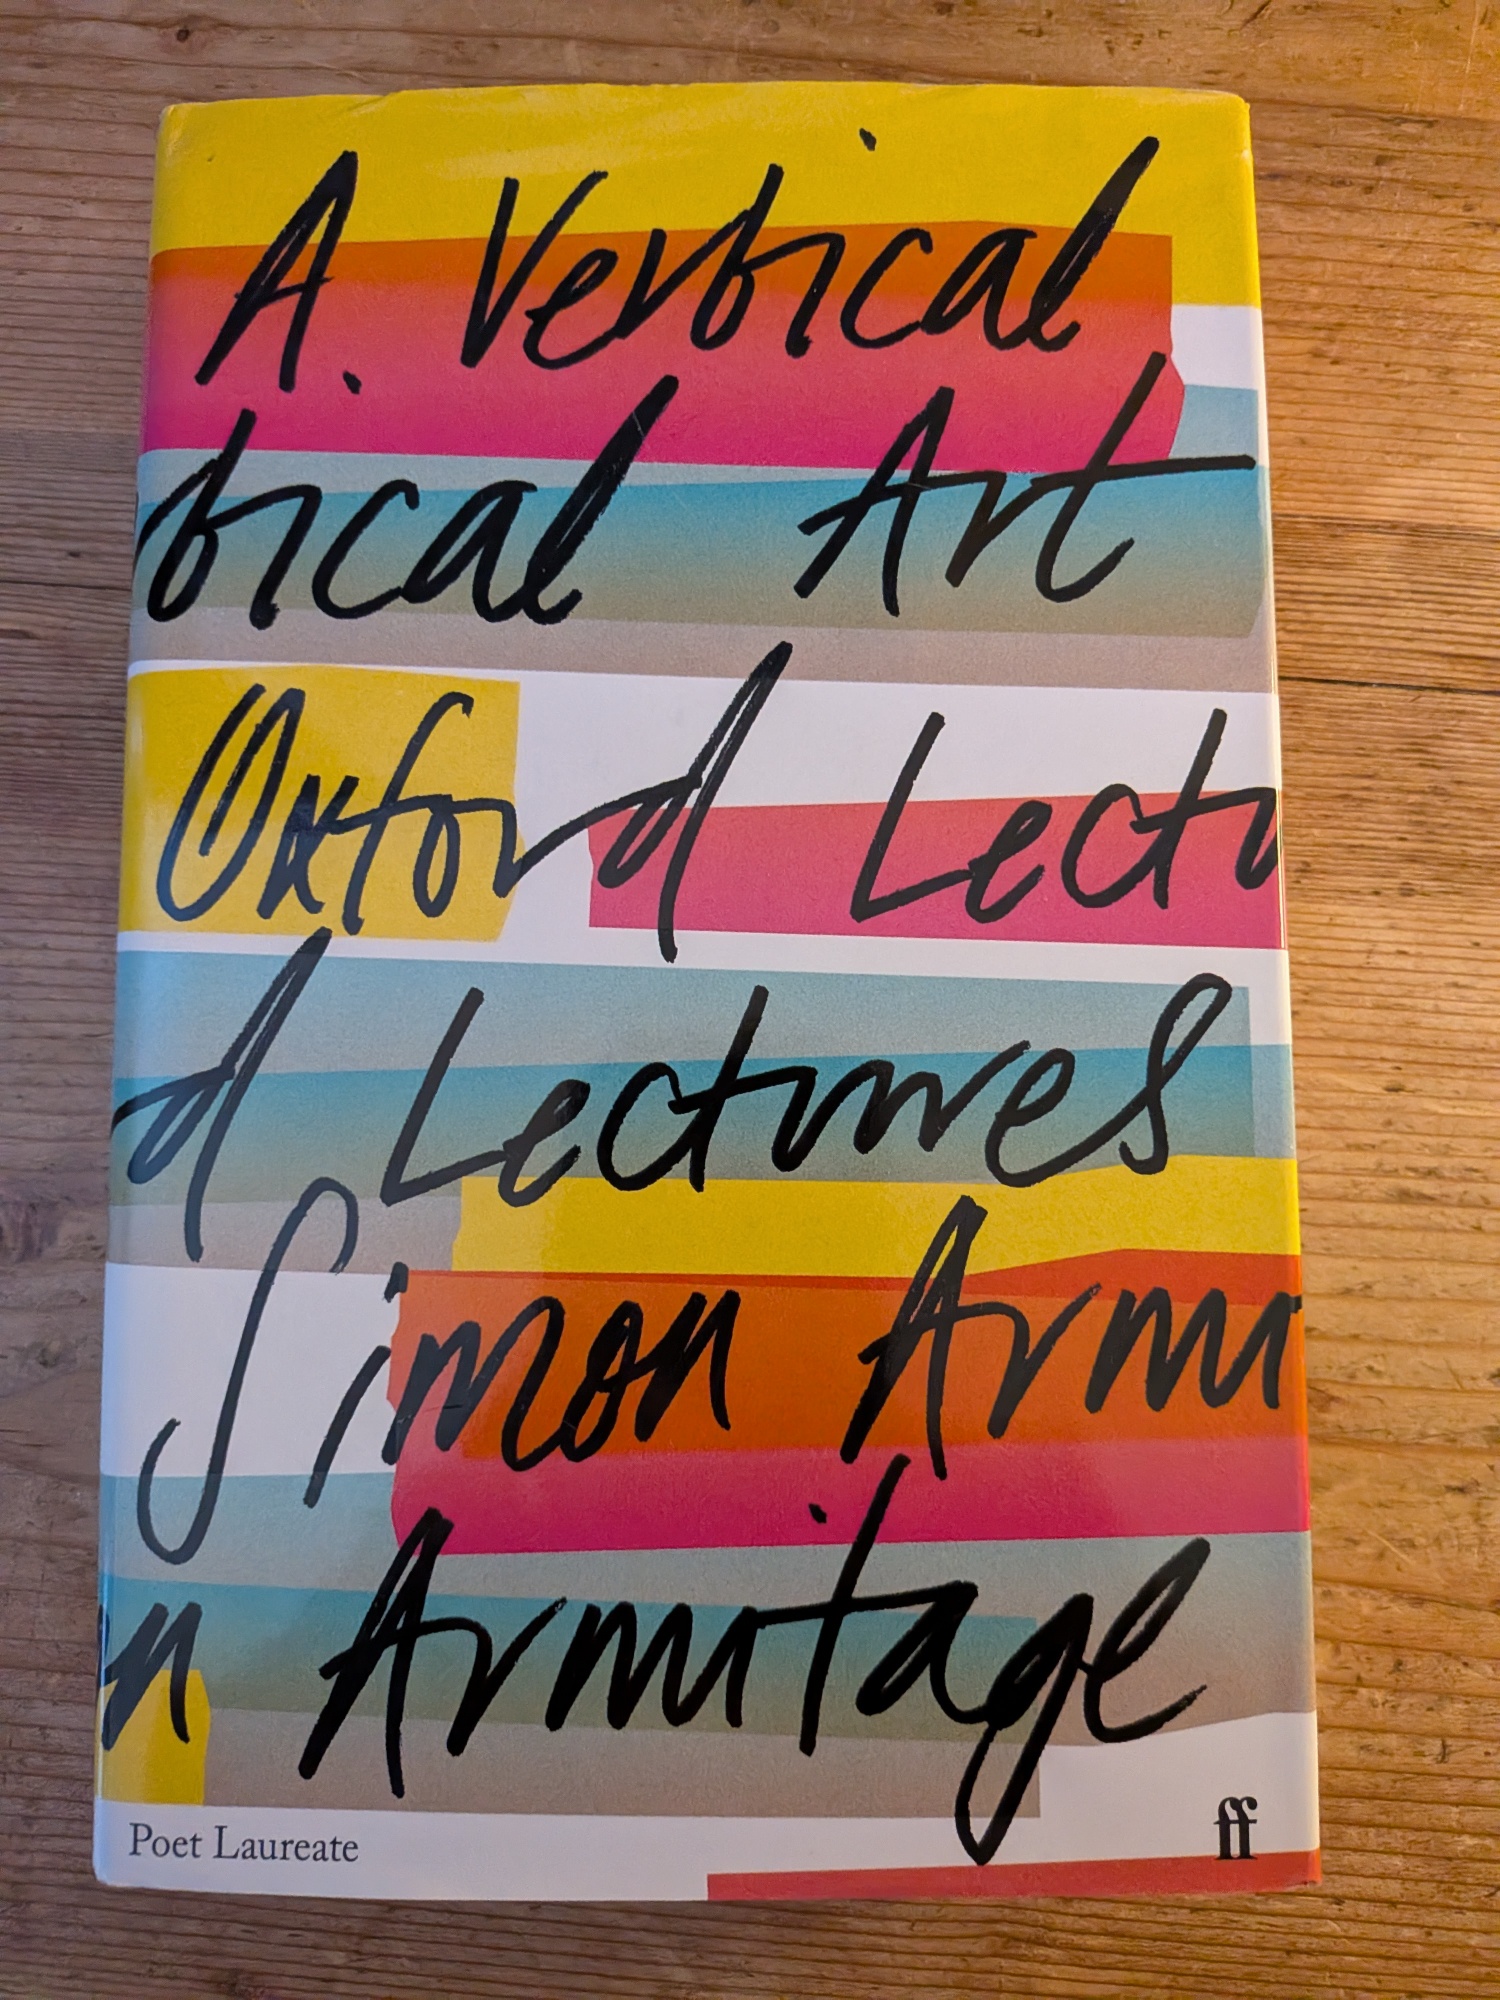 A Vertical
tical Art
Oxford Lectu
d Lectures
Simon Armi
n Armitage
Poet Laureate
ff